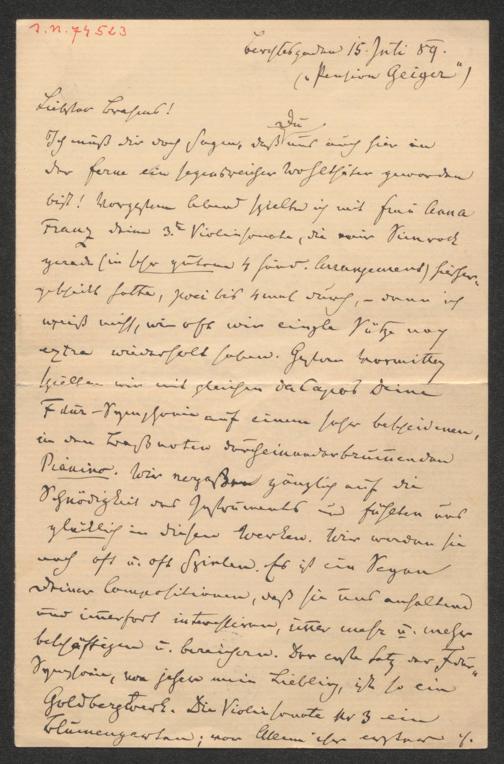 I.N. 74523
Berchtesgaden 15. Juli 89.
("Pension Geiger")
Liebster Brahms!
Ich muß dir doch sagen, daß Du uns auch hier in
der Ferne ein segensreicher Wohlthäter geworden
bist! Vorgestern Abend spielte ich mit Frau Anna
Franz deine 3.te Violinsonate, die mir Simrock
gerade (in sehr gutem 4 händ. Arrangement) hieher-
geschickt hatte, zwei bis 4mal durch, – denn ich
weiß nicht, wie oft wir einzle Sätze noch
extra wiederholt haben. Gestern Vormittag
spielten wir mit gleichen da Capos Deine
F dur-Symphonie auf einem sehr bescheidenen,
in den Baßnoten durcheinanderbrummenden
Pianino. Wir vergaßen gänzlich auf die
Schnödigkeit des Instruments und fühlten uns
glücklich in diesen Werken. Wir werden sie
noch oft u. oft spielen. Es ist ein Segen
Deiner Compositionen, daß sie uns anhaltend
und immerfort interessiren, immer mehr u. mehr
beschäftigen u. bereichern. Der erste Satz der "F dur"
Symphonie, von jeher mein Liebling, ist so ein
Goldbergwerk. Die Violinsonate Nr 3 ein
Blumengarten; vor Allem ihr erster